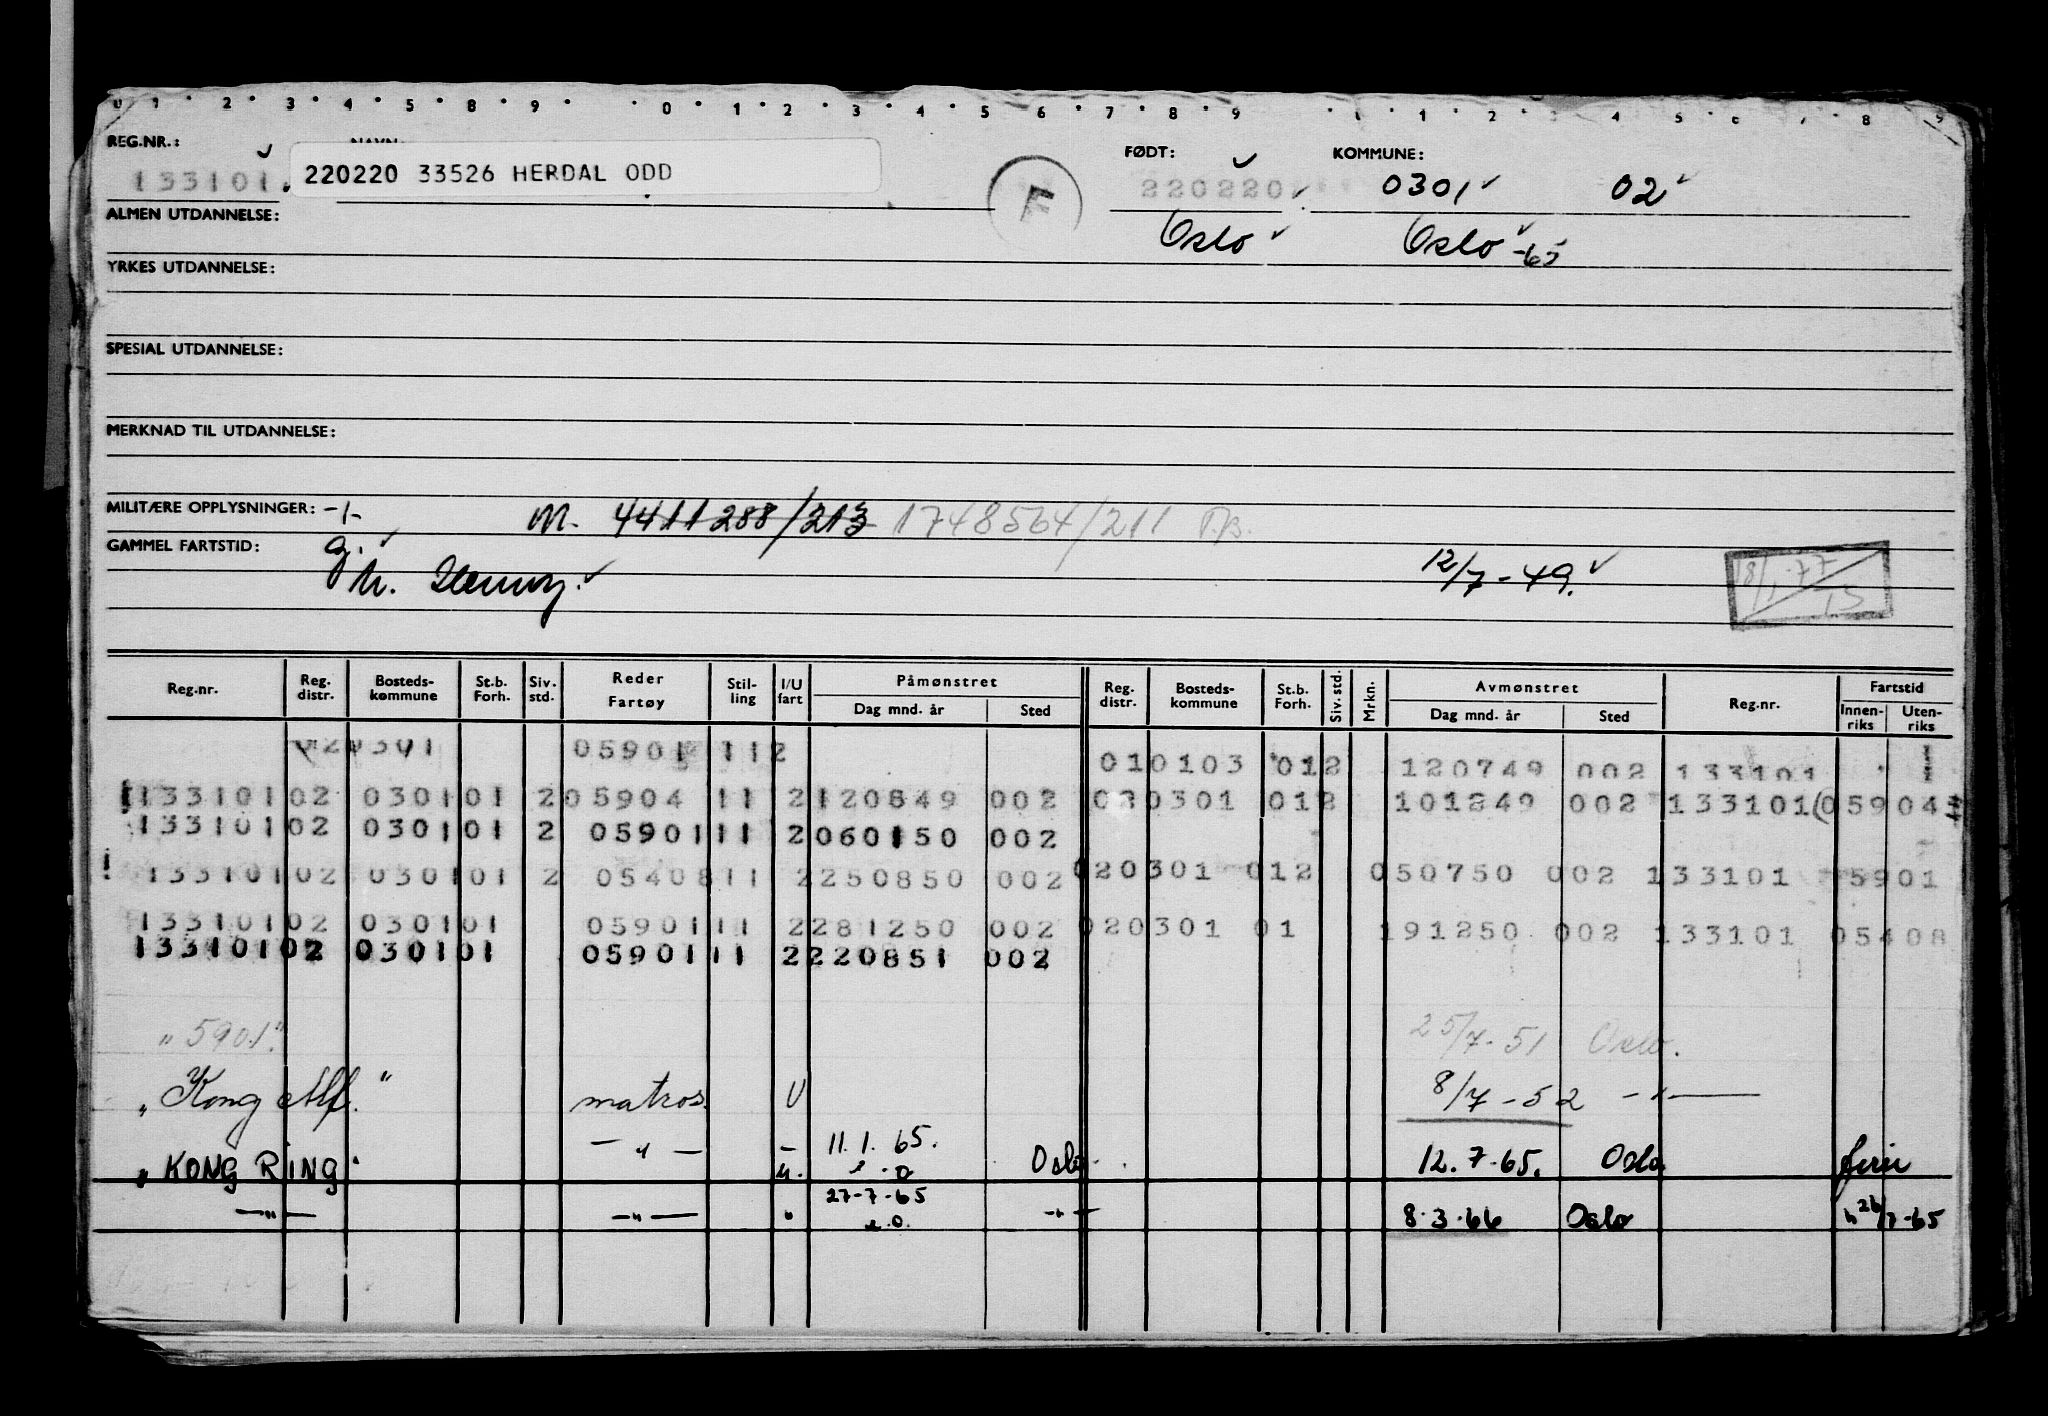 0 1 2 3 4 5 8 9 0 1 2 3 4 5 6 7 8 9 1 1 2 3 4 5 6 7 8 9
REG.NR.: NAVN FØDT: KOMMUNE:
133101. 220220 33526 HERDAL ODD F 220220 0301 02
ALMEN UTDANNELSE: Oslo Oslo -65
YRKES UTDANNELSE:
SPESIAL UTDANNELSE:
MERKNAD TIL UTDANNELSE:
MILITÆRE OPPLYSNINGER: -1- M. 4411288/213 1748564/211
GAMMEL FARTSTID: g.
12/7-49. 18/1-77 15
Reg.nr. Reg. distr. Bosteds- kommune St.b. Forh. Siv. std. Reder Fartøy Stil- ling I/U fart Påmønstret Dag mnd. år Sted Reg. distr. Bosteds- kommune St.b. Forh. Siv. std. Mrkn. Avmønstret Dag mnd. år Sted Reg.nr. Fartstid Innen- riks Uten- riks
020301 05901 112 010103 012 120749 002 133101
133101 02 0301 01 2 05904 11 2 120849 002 020301 012 101249 002 133101 05904
133101 02 0301 01 2 05901 11 2 060150 002
133101 02 0301 01 2 05408 11 2 250850 002 020301 012 050750 002 133101 5901
133101 02 0301 01 05901 11 2 281250 002 020301 01 191250 002 133101 05408
133101 02 0301 01 05901 11 2 220851 002
"5901" 25/7-51 Oslo.
"Kong Alf." matros. U 8/7-52 -"-
"KONG RING" -"- u. 11.1.65. e.o Oslo 12.7.65. Oslo ferie
-"- -"- " 27-7-65 e.o. -"- 8.3.66 Oslo 26/7-65